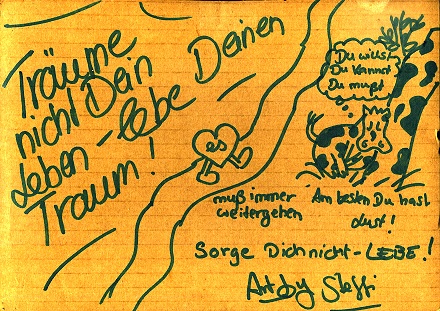 Träume
nicht Dein
Leben - lebe Deinen
Traum!
Du willst
Du kannst
Du mußt
es
muß immer
weitergehen
Am besten Du hast
Lust!
Sorge Dich nicht - LEBE!
Art by Steffi